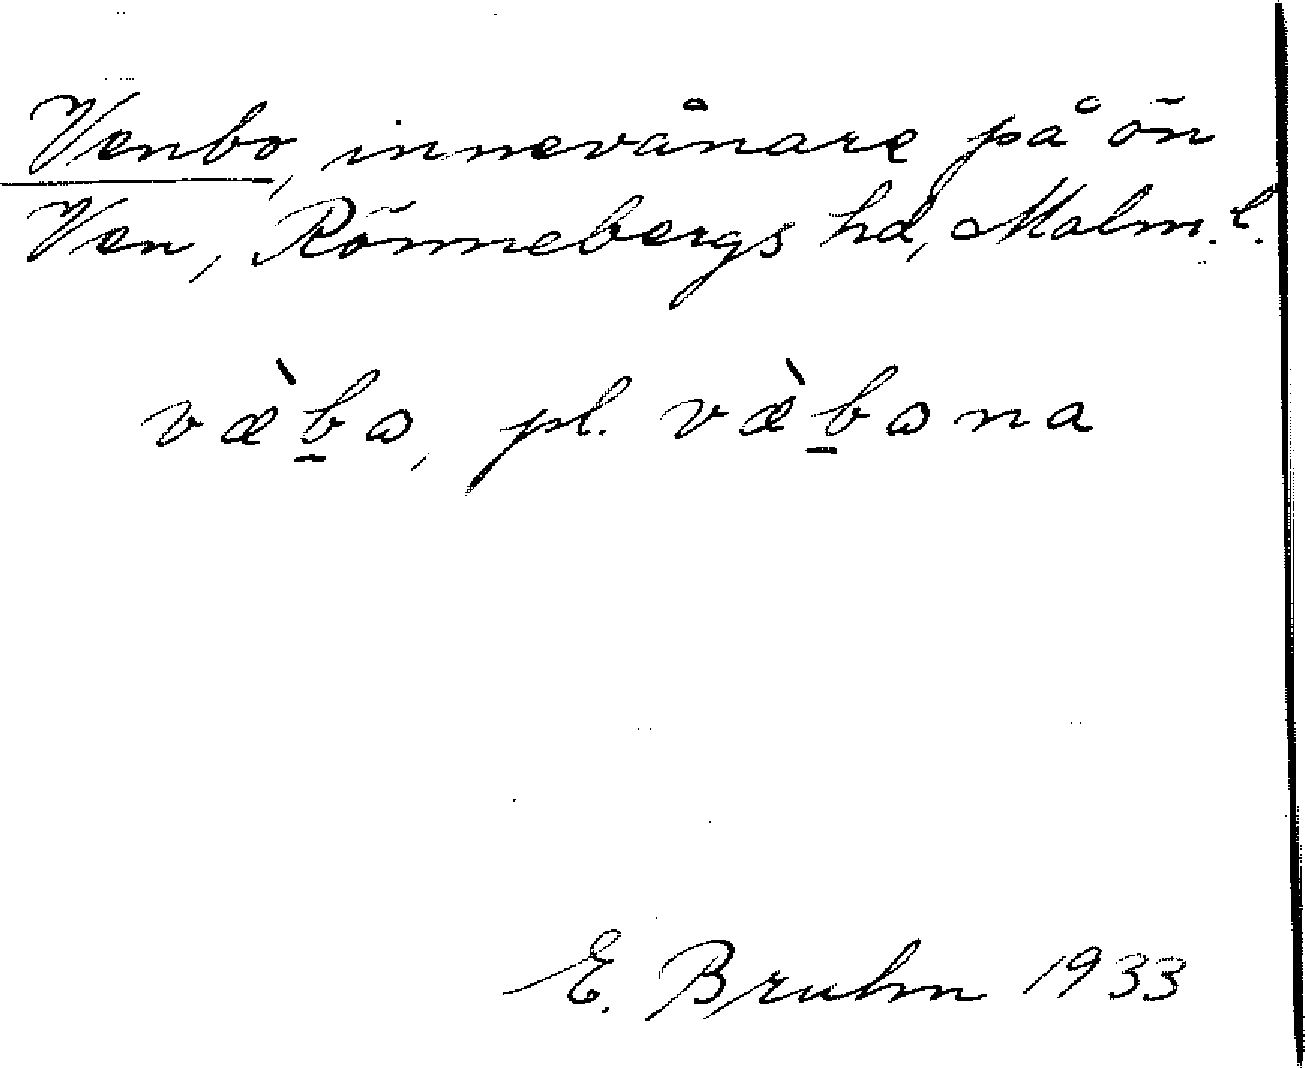 Venbo, innevånare på ön
Ven, Rönnebergs hd, Malm. l.
væ̀b̲ɷ, pl. væ̀b̲ɷna
E. Bruhn 1933